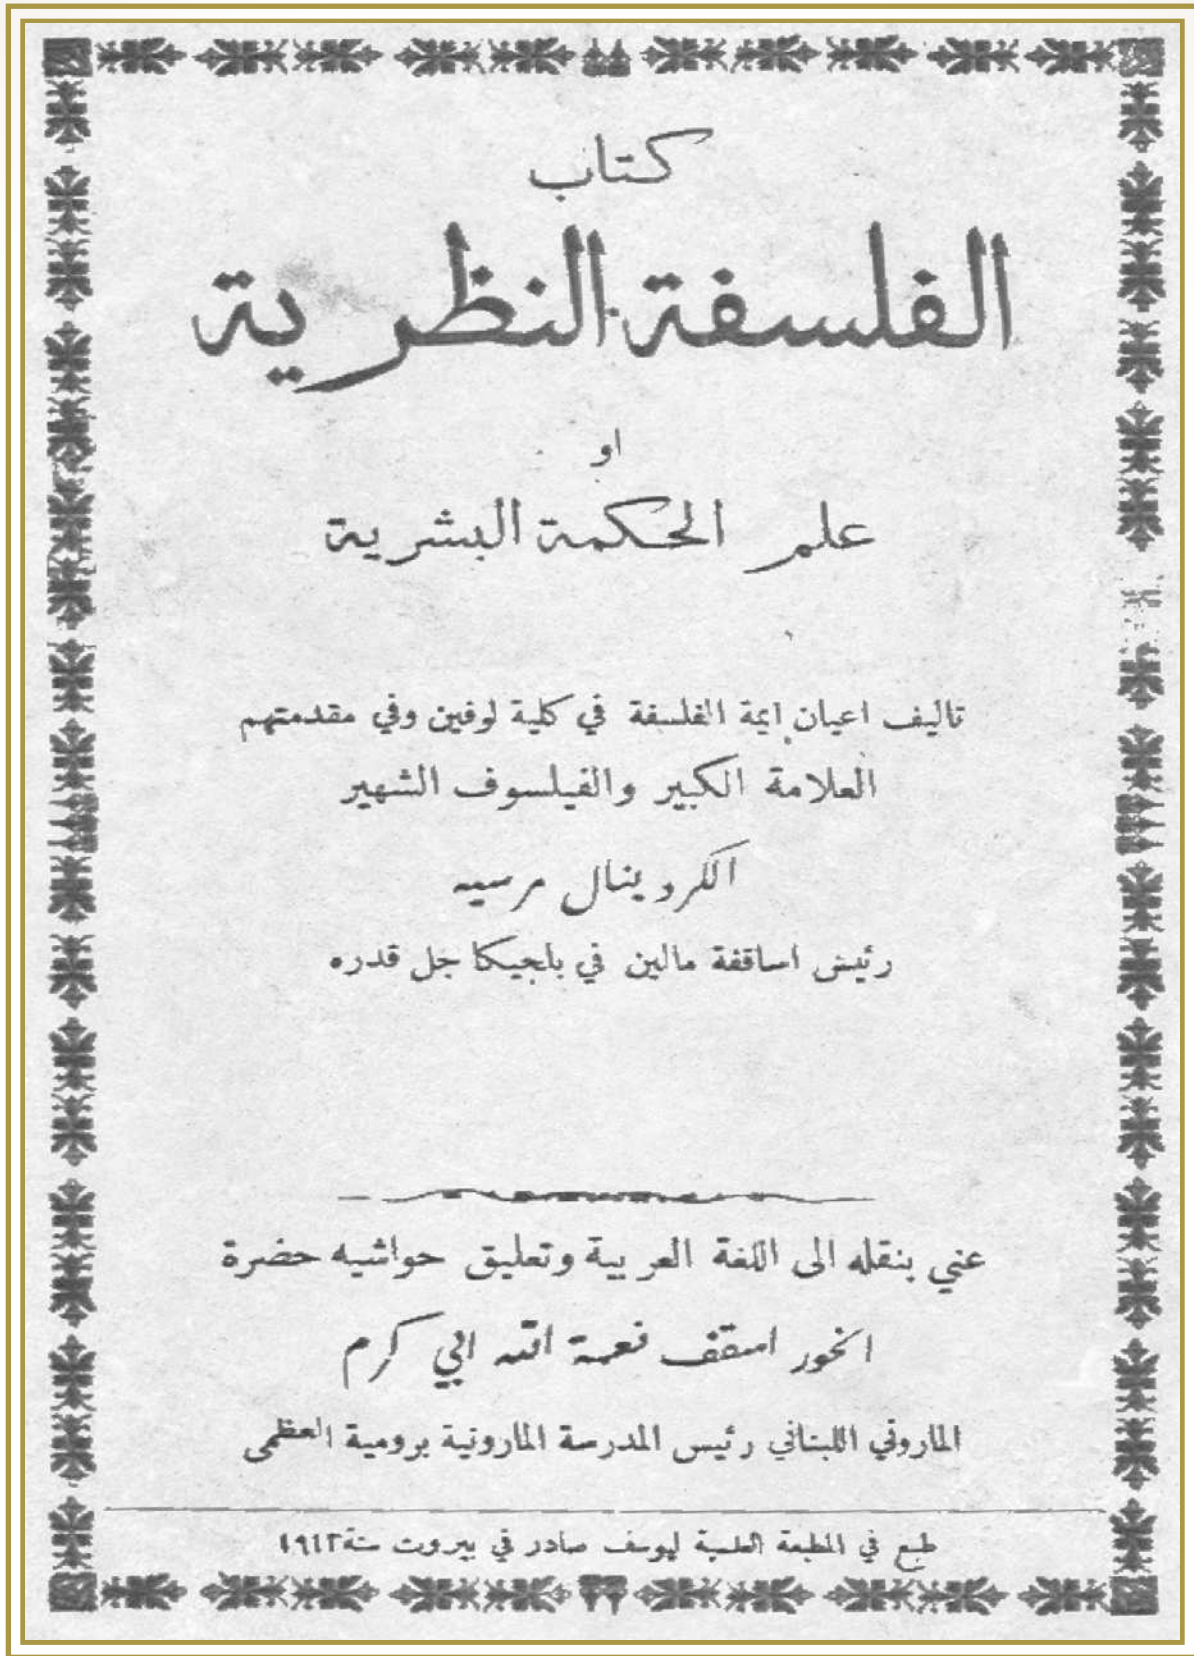 كتاب
الفلسفة النظرية
او
علم الحكمة البشرية
تاليف اعيان ايمة الفلسفة في كلية لوفين وفي مقدمتهم
العلامة الكبير والفيلسوف الشهير
الكردينال مرسيه
رئيس اساقفة مالين في بلجيكا جل قدره
عني بنقله الى اللغة العربية وتعليق حواشيه حضرة
الخور اسقف نعمة الله ابي كرم
الماروني اللبناني رئيس المدرسة المارونية برومية العظمى
طبع في المطبعة العلمية ليوسف صادر في بيروت سنة ١٩١٢